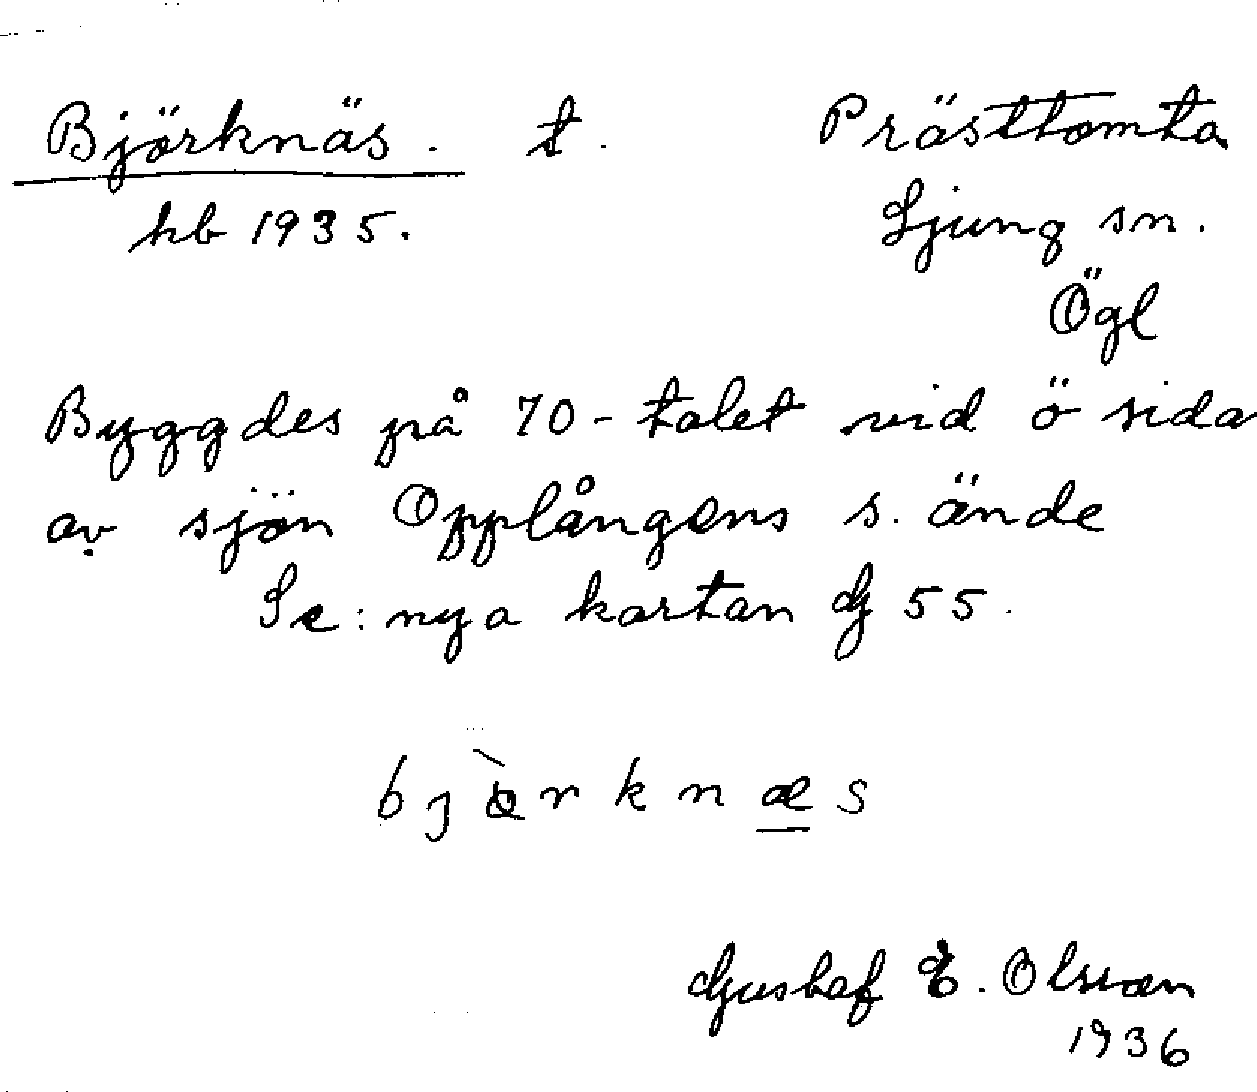 Björknäs. t. Prästtomta
hb 1935. Ljung sn.
Ögl
Byggdes på 70-talet vid ö sida
av sjön Opplångens s. ände
Se: nya kartan G 55.
Gustaf E. Olsson
1936